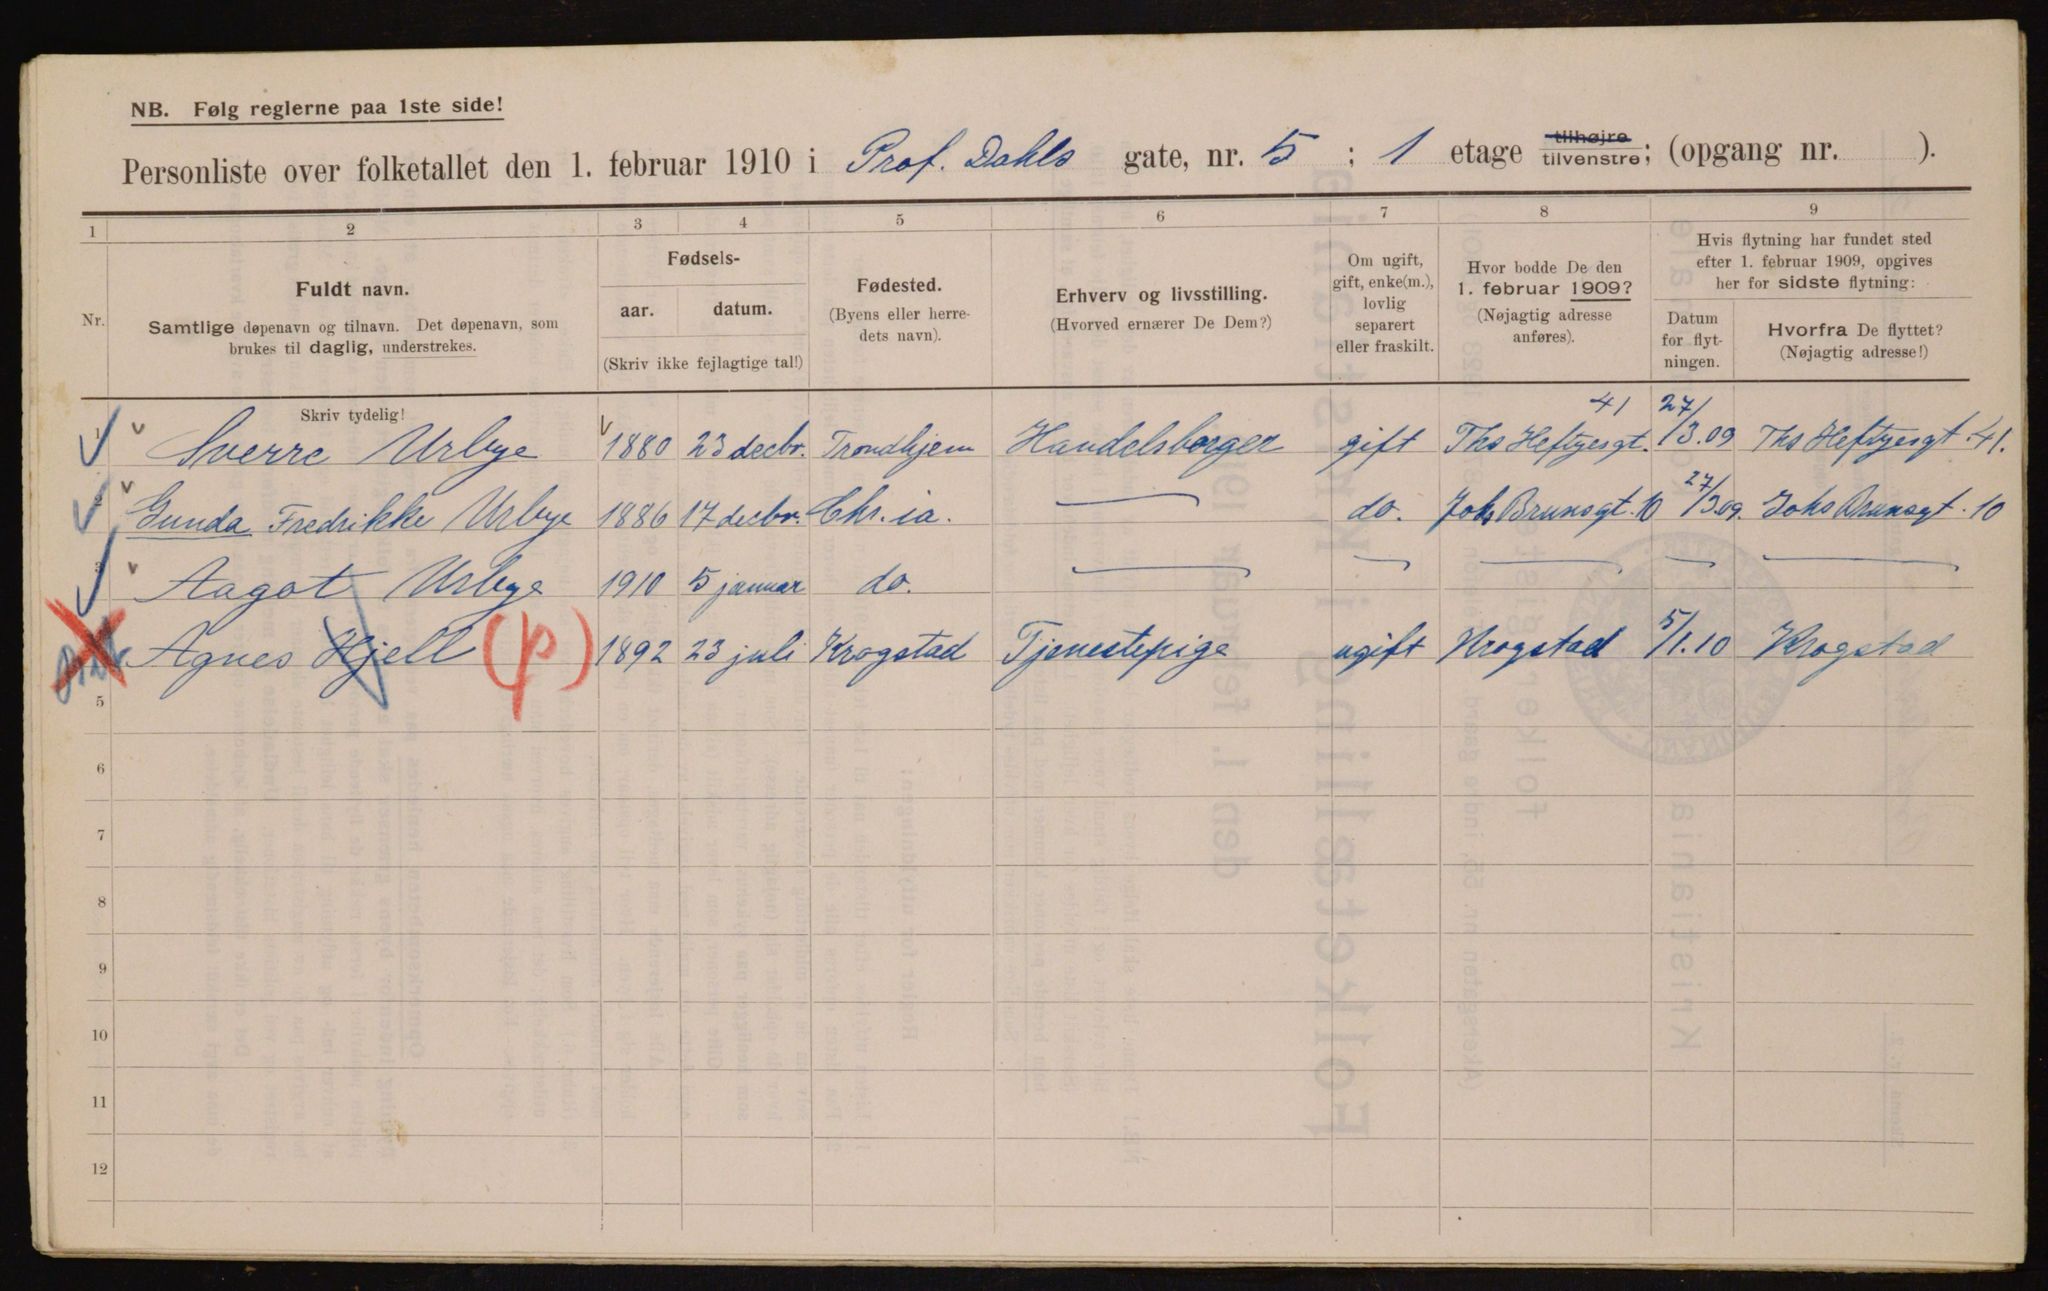 NB. Følg reglerne paa 1ste side!
Personliste over folketallet den 1. februar 1910 i Prof. Dahls gate, nr. 5 ; 1 etage tilhøjre tilvenstre; (opgang nr. ).
1 2 3 4 5 6 7 8 9
Nr.
Fuldt navn.
Samtlige døpenavn og tilnavn. Det døpenavn, som
brukes til daglig, understrekes.
Fødsels-
aar. datum.
(Skriv ikke fejlagtige tal!)
Fødested.
(Byens eller herre-
dets navn).
Erhverv og livsstilling.
(Hvorved ernærer De Dem?)
Om ugift,
gift, enke(m.),
lovlig
separert
eller fraskilt.
Hvor bodde De den
1. februar 1909?
(Nøjagtig adresse
anføres).
Hvis flytning har fundet sted
efter 1. februar 1909, opgives
her for sidste flytning:
Datum
for flyt-
ningen.
Hvorfra De flyttet?
(Nøjagtig adresse!)
Skriv tydelig!
1 Sverre Urbye 1880 23 decbr. Trondhjem Handelsborger gift Ths Heftyesgt. 41 27/3.09 Ths Heftyesgt. 41.
2 Gunda Fredrikke Urbye 1886 17 decbr. Chr.ia. — do. Johs Brunsgt. 10 27/3.09. Johs Brunsgt. 10
3 Aagot Urbye 1910 5 januar do. — — — — —
Agnes Hjell (p) 1892 23 juli Krogstad Tjenestepige ugift Krogstad 5/1.10 Krogstad
5
6
7
8
9
10
11
12